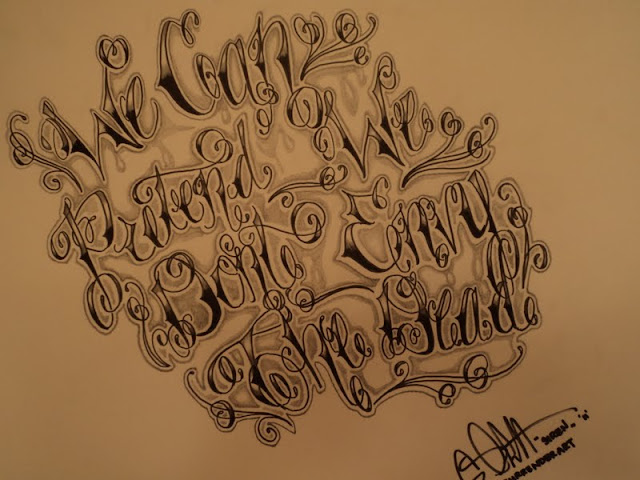 We Can
Pretend We
Dont Envy
The Dead